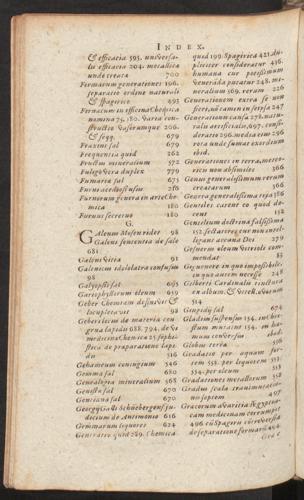 INDEX.
& efficacia 595. universa-
lis efficacia 204. metallica
unde creata 700
Fermarum generationes 196.
separatio ordine naturali
& spagirico 493
Fornacum in officina Chemica
nomina 75. 180. varia con-
structio vasorumque 206.
& seqq. 679
Fraxini sal 679
Frequentia quid 262
Fructus mineralium 572
Fuligo vera duplex 779
Fumaria sal 673
Furni acediosi usus 216
Furnorum genera in arte Che-
mica 180
Furnus secretus 180
G.
Galenum Mosen ridet 98
Galeni sententia de sale
681
Galeni vitia 91
Galenicus idololatra confusus
98
Galyopsis sal 695
Gariophyllorum oleum 659
Geber Chemiam
locupletavit 98
Geberi locus de materia con-
grua lapidis 688. 794. de
medicina Chemica 25 sophi-
stica de praparatione lapi-
dis 516
Gehennium coniugium 546
Gemma sal 680
Genealogia mineralium 565
Genista sal 670
Genciana sal 670
Georgij
dictum de Antimonio 616
Gemmarum liquores 624
Generatio quid 289. Chemica
quid 199. Spagirica 421. du-
pliciter consideratur 436.
humana cur potissimum
Veneranda putatur 248. me-
tallium 569. rerum 226
Generationem extra se non
fieri, nec tamen in se 247
Generationum causa 278. natu-
ralis artificialis, 697. consi-
deratio 296. media eius 296
rota unde sumat exordium
ibid.
Generationes in terra, meteo-
ricis non absimiles 366
Genus generalissimum rerum
creatarum 366
Genera generalissima tria 386
Genesis carent eo quod do-
cent 158
Genesium doctrina falsissima
152. sectatores cur non intel-
ligant arcana Dei 278
Gesnerus oleum Vitrioli com-
mendat 85
Gignere in quo impossibile,
in quo autem necesse 248
Gilberti Cardinalis tinctura
ex album. & Vitell. ovorum
514
Genipdij sal 674
Gladium suspensum 154. in Chri-
stum missum 154. in ho-
minum conversum ibid.
Globus terra 596
Gradatio per aquam fur-
tem 555. per liquorem 555
554. per oleum 553
Gradationes metallicum 552
Gradus scala transmutatio-
nis septem 497
Gracorum avaritia
cam medicinam corrumpit
496 cum Spagiris
de separatione formarum 494